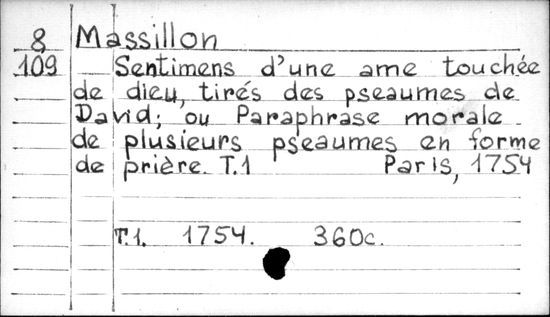 8 Massillon
109 Sentimens d'une ame touchée
de dieu, tirés des pseaumes de
David; ou Paraphrase morale
de plusieurs pseaumes en forme
de prière. T.1 Paris, 1754
T.1. 1754. 360c.